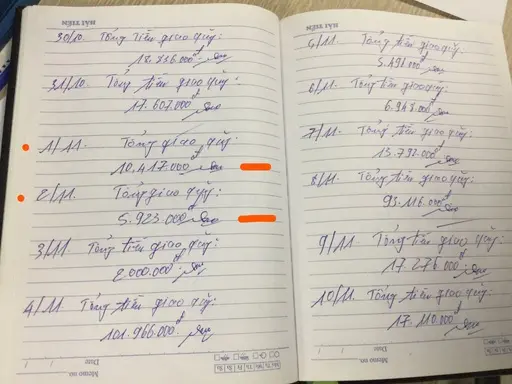 HẢI TIẾN
30/10. Tổng tiền giao quỹ:
18.336.000đ
31/10. Tổng tiền giao quỹ:
17.607.000đ
1/11. Tổng giao quỹ:
10.417.000đ
2/11. Tổng giao quỹ:
5.923.000đ
3/11. Tổng tiền giao quỹ:
2.000.000đ
4/11 Tổng tiền giao quỹ:
101.966.000đ
Memo no.
Date
HẢI TIẾN
5/11. Tổng tiền giao quỹ:
5.491.000đ
6/11. Tổng tiền giao quỹ:
6.947.000đ
7/11. Tổng tiền giao quỹ:
13.792.000đ
8/11. Tổng tiền giao quỹ:
93.116.000đ
9/11. Tổng tiền giao quỹ:
17.276.000đ
10/11. Tổng tiền giao quỹ:
17.110.000đ
Memo no.
Date